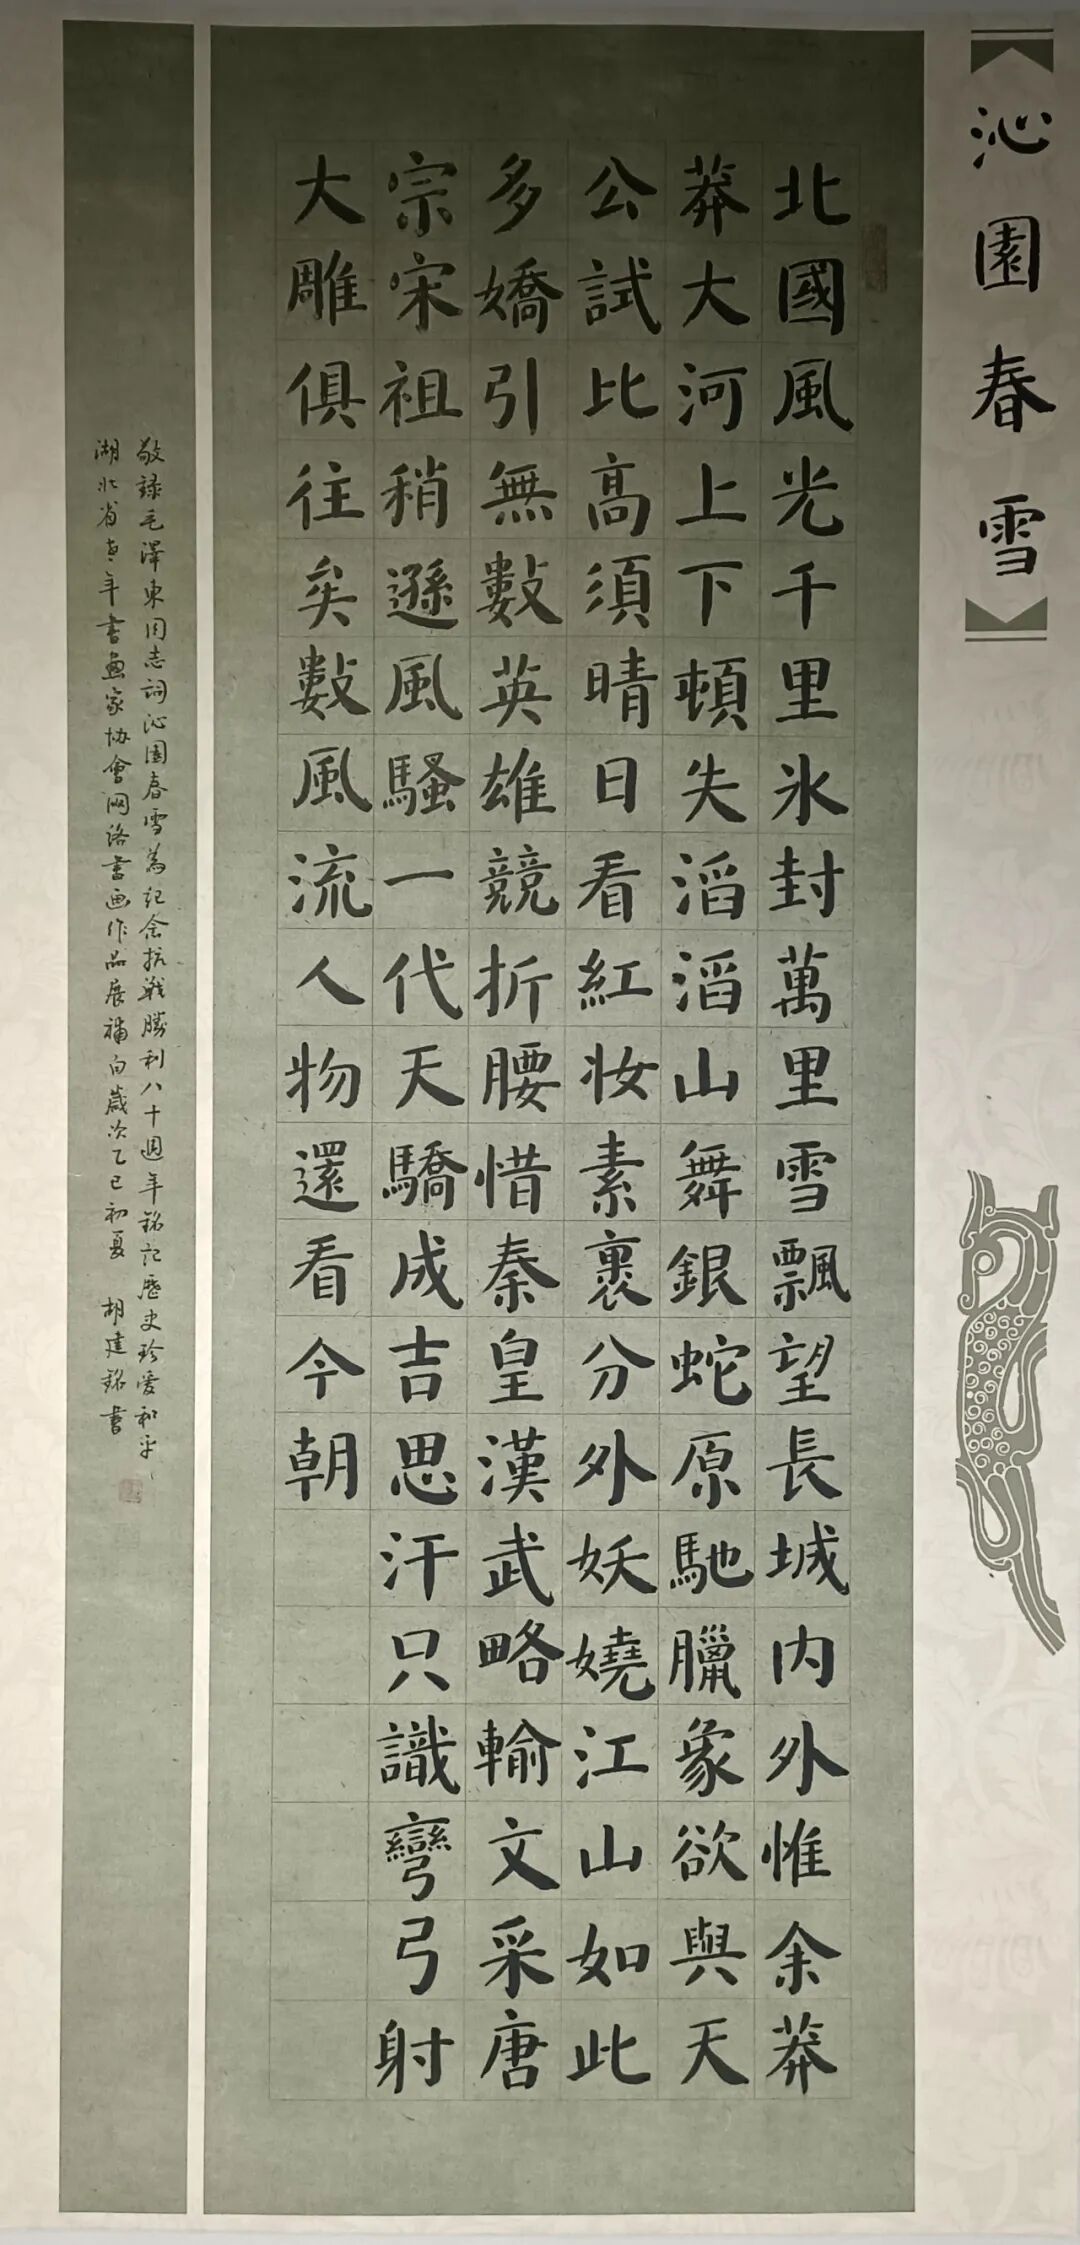 沁園春雪
北國風光千里氷封萬里雪飄望長城内外惟余莽
莽大河上下頓失滔滔山舞銀蛇原馳臘象欲與天
公試比高須晴日看紅妆素裹分外妖嬈江山如此
多嬌引無數英雄競折腰惜秦皇漢武略輸文采唐
宗宋祖稍遜風騷一代天驕成吉思汗只識彎弓射
大雕俱往矣數風流人物還看今朝
敬録毛澤東同志詞沁園春雪為紀念抗戰勝利八十週年銘記歷史珍愛和平、
湖北省老年書畫家协會网络書画作品展補白歲次乙巳初夏 胡建銘書